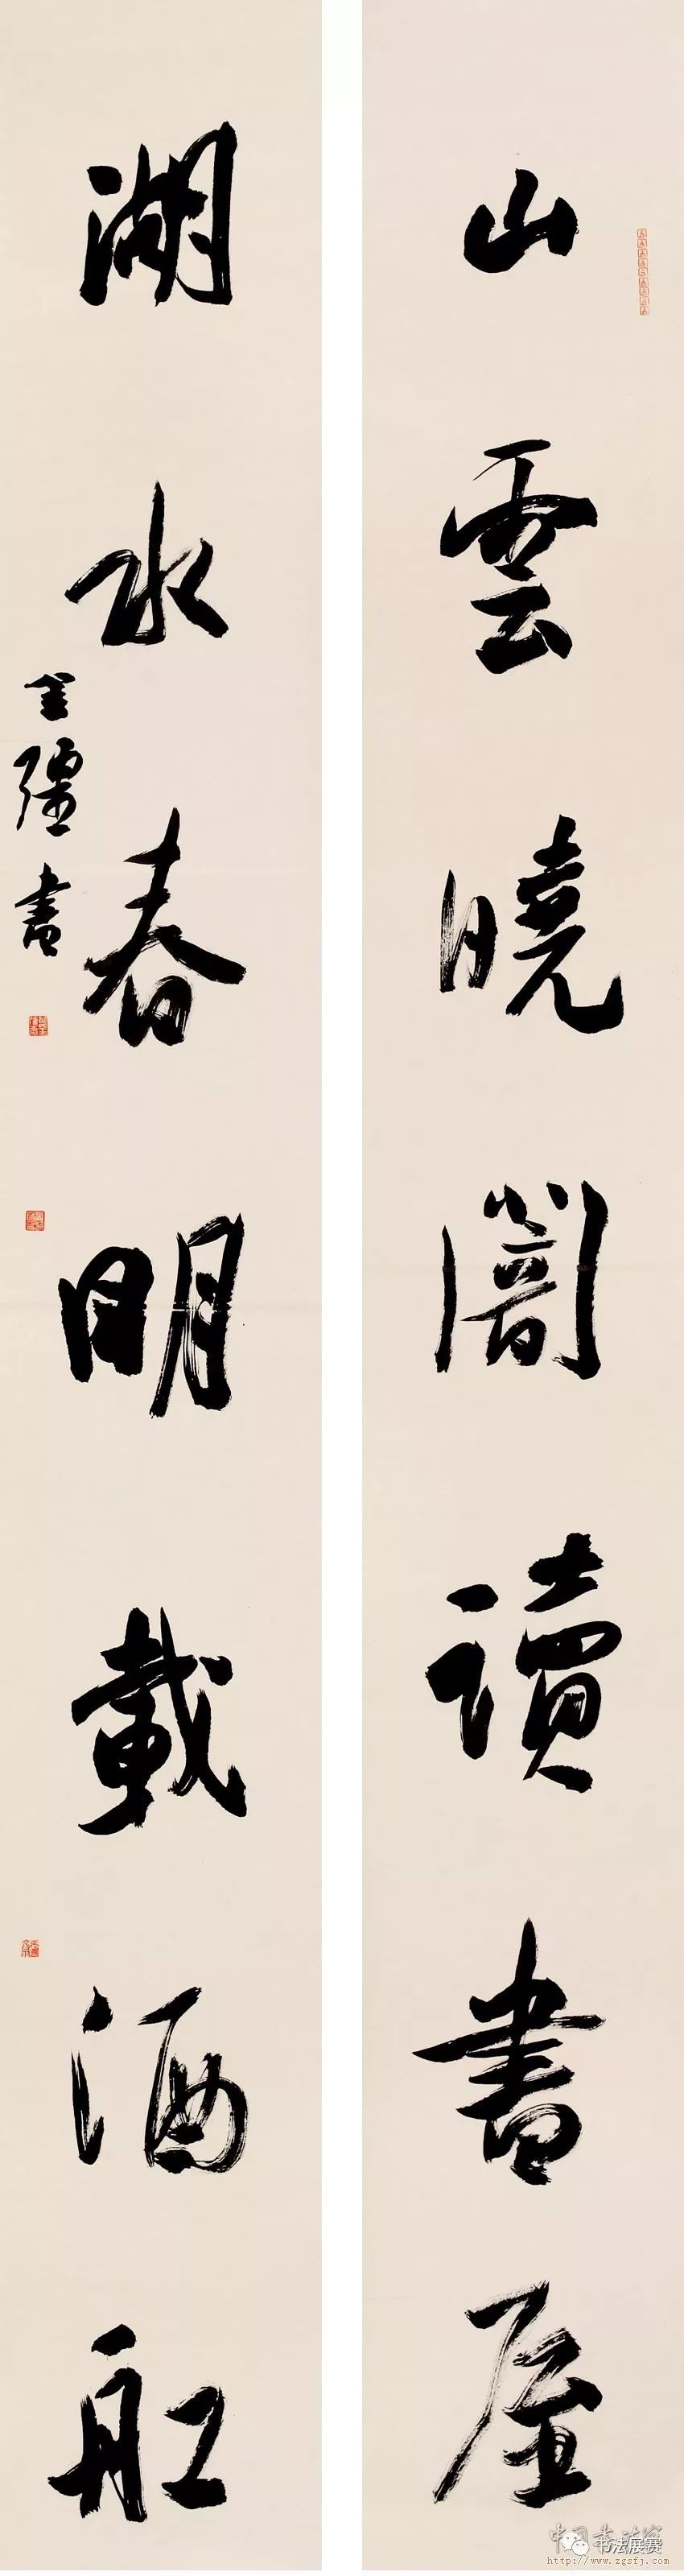 山雲曉闇讀書屋
湖水春明載酒舩
金疆書
中国书法家
书法展赛
http://www.zgsfj.com